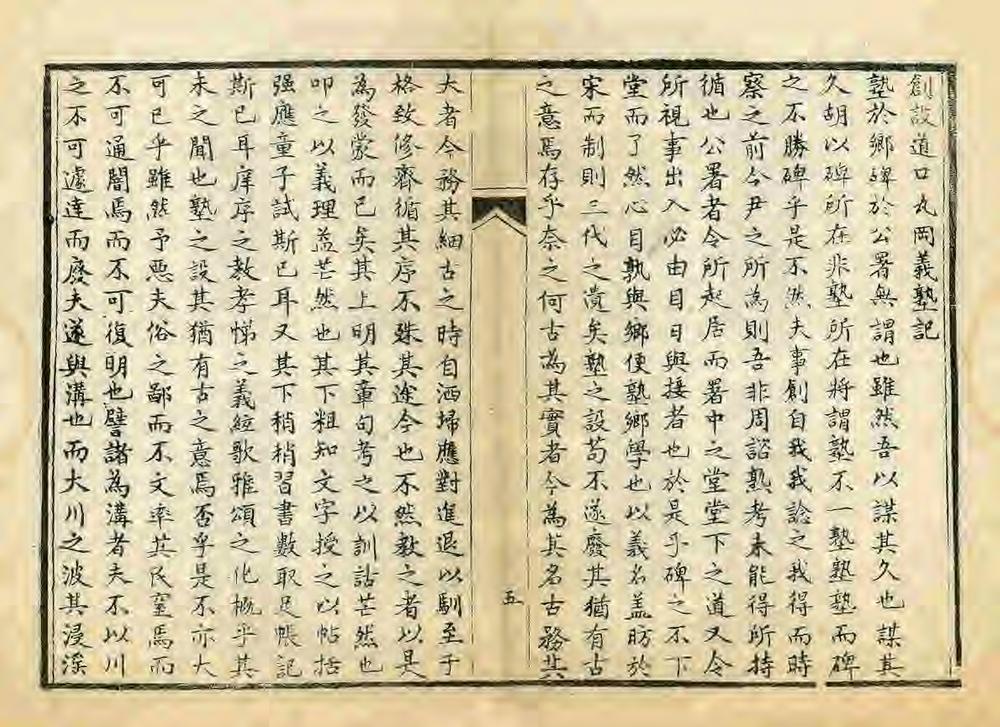 創設道口丸岡義塾記
塾於鄉碑於公署無謂也雖然吾以謀其久也謀其
久胡以碑所在非塾所在將謂塾不一塾塾塾而碑
之不勝碑乎是不然夫事創自我我諗之我得而時
察之前令尹之所為則吾非周諮熟考未能得所持
循也公署者令所起居而署中之堂堂下之道又令
所視事出入必由目日與接者也於是乎碑之不下
堂而了然心目孰與鄉便塾鄉學也以義名蓋昉於
宋而制則三代之遺矣塾之設苟不遂廢其猶有古
之意焉存乎奈之何古為其實者今為其名古務其
五
大者今務其細古之時自洒埽應對進退以馴至于
格致修齊循其序不殊其途今也不然教之者以是
為發蒙而已矣其上明其章句考之以訓詁芒然也
叩之以義理益芒然也其下粗知文字授之以帖括
强應童子試斯已耳又其下稍稍習書數取足帳記
斯已耳庠序之教孝悌之義絃歌雅頌之化概乎其
未之聞也塾之設其猶有古之意焉否乎是不亦大
可已乎雖然予惡夫俗之鄙而不文率其民窒焉而
不可通闇焉而不可復明也譬諸為溝者夫不以川
之不可遽達而廢夫遂與溝也而大川之波其浸淫